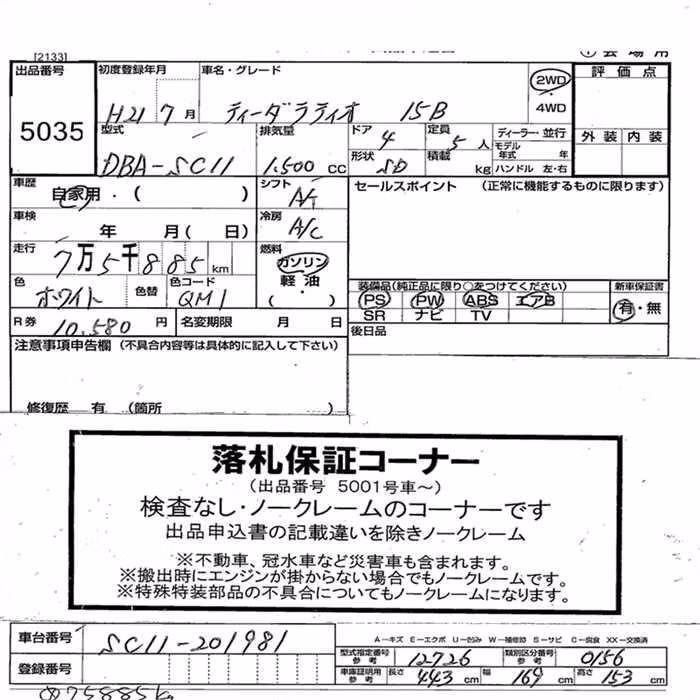 [2133]
出品番号
5035
初度登録年月
H21 7 月
車名・グレード
ティーダラティオ 15B
2WD
4WD
評価点
外装 内装
型式
DBA-SC11
排気量
1.500 cc
ドア
4
定員
5 人
形状
SD
積載
kg
ディーラー・並行
モデル年式 年
ハンドル 左・右
車歴
自家用・( )
シフト
A/T
セールスポイント (正常に機能するものに限ります)
車検
年 月( 日)
冷房
A/C
走行
7万5千885 km
燃料
ガソリン
軽油
( )
色
ホワイト
色替
色コード
QM1
装備品(純正品に限り○をつけてください)
PS PW ABS エアB
SR ナビ TV
新車保証書
有・無
R券
10,580 円
名変期限 月 日
後日品
注意事項申告欄 (不具合内容等は具体的に記入して下さい)
修復歴 有 (箇所 )
落札保証コーナー
(出品番号 5001号車~)
検査なし・ノークレームのコーナーです
出品申込書の記載違いを除きノークレーム
※不動車、冠水車など災害車も含まれます。
※搬出時にエンジンが掛からない場合でもノークレームです。
※特殊特装部品の不具合についてもノークレームになります。
車台番号
SC11-201981
登録番号
A-キズ E-エクボ U-凹み W-補修跡 S-サビ C-腐食 XX-交換済
型式指定番号 参考
12726
類別区分番号 参考
0156
車庫証明用 参考
長さ 443 cm 幅 169 cm 高さ 153 cm
75885k